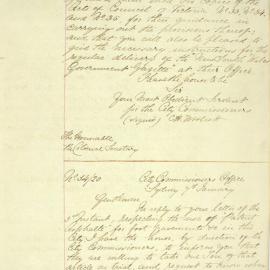 Acts of Council of Victoria No 23, No 34,
and No 35 for their guidance in
carrying out the provisions thereof,
and that you will also be pleased to
give the necessary instructions for the
regular delivery of the New South Wales
Government Gazette at their Office
I have the honor &c
Sir
Your Most Obedient Servant
for the City Commissioners
(signed) C H Woolcott
The Honorable
the Colonial Secretary
No 54/20 City Commissioners Office
Sydney January
Gentlemen
In reply to your letter of the
5th instant, respecting the use of "Patent
Asphalte" for foot pavements in this
City I have the honor, by direction of the
City Commissioners, to inform you that
they are willing to take one Ton of that
article on trial, and request to know when